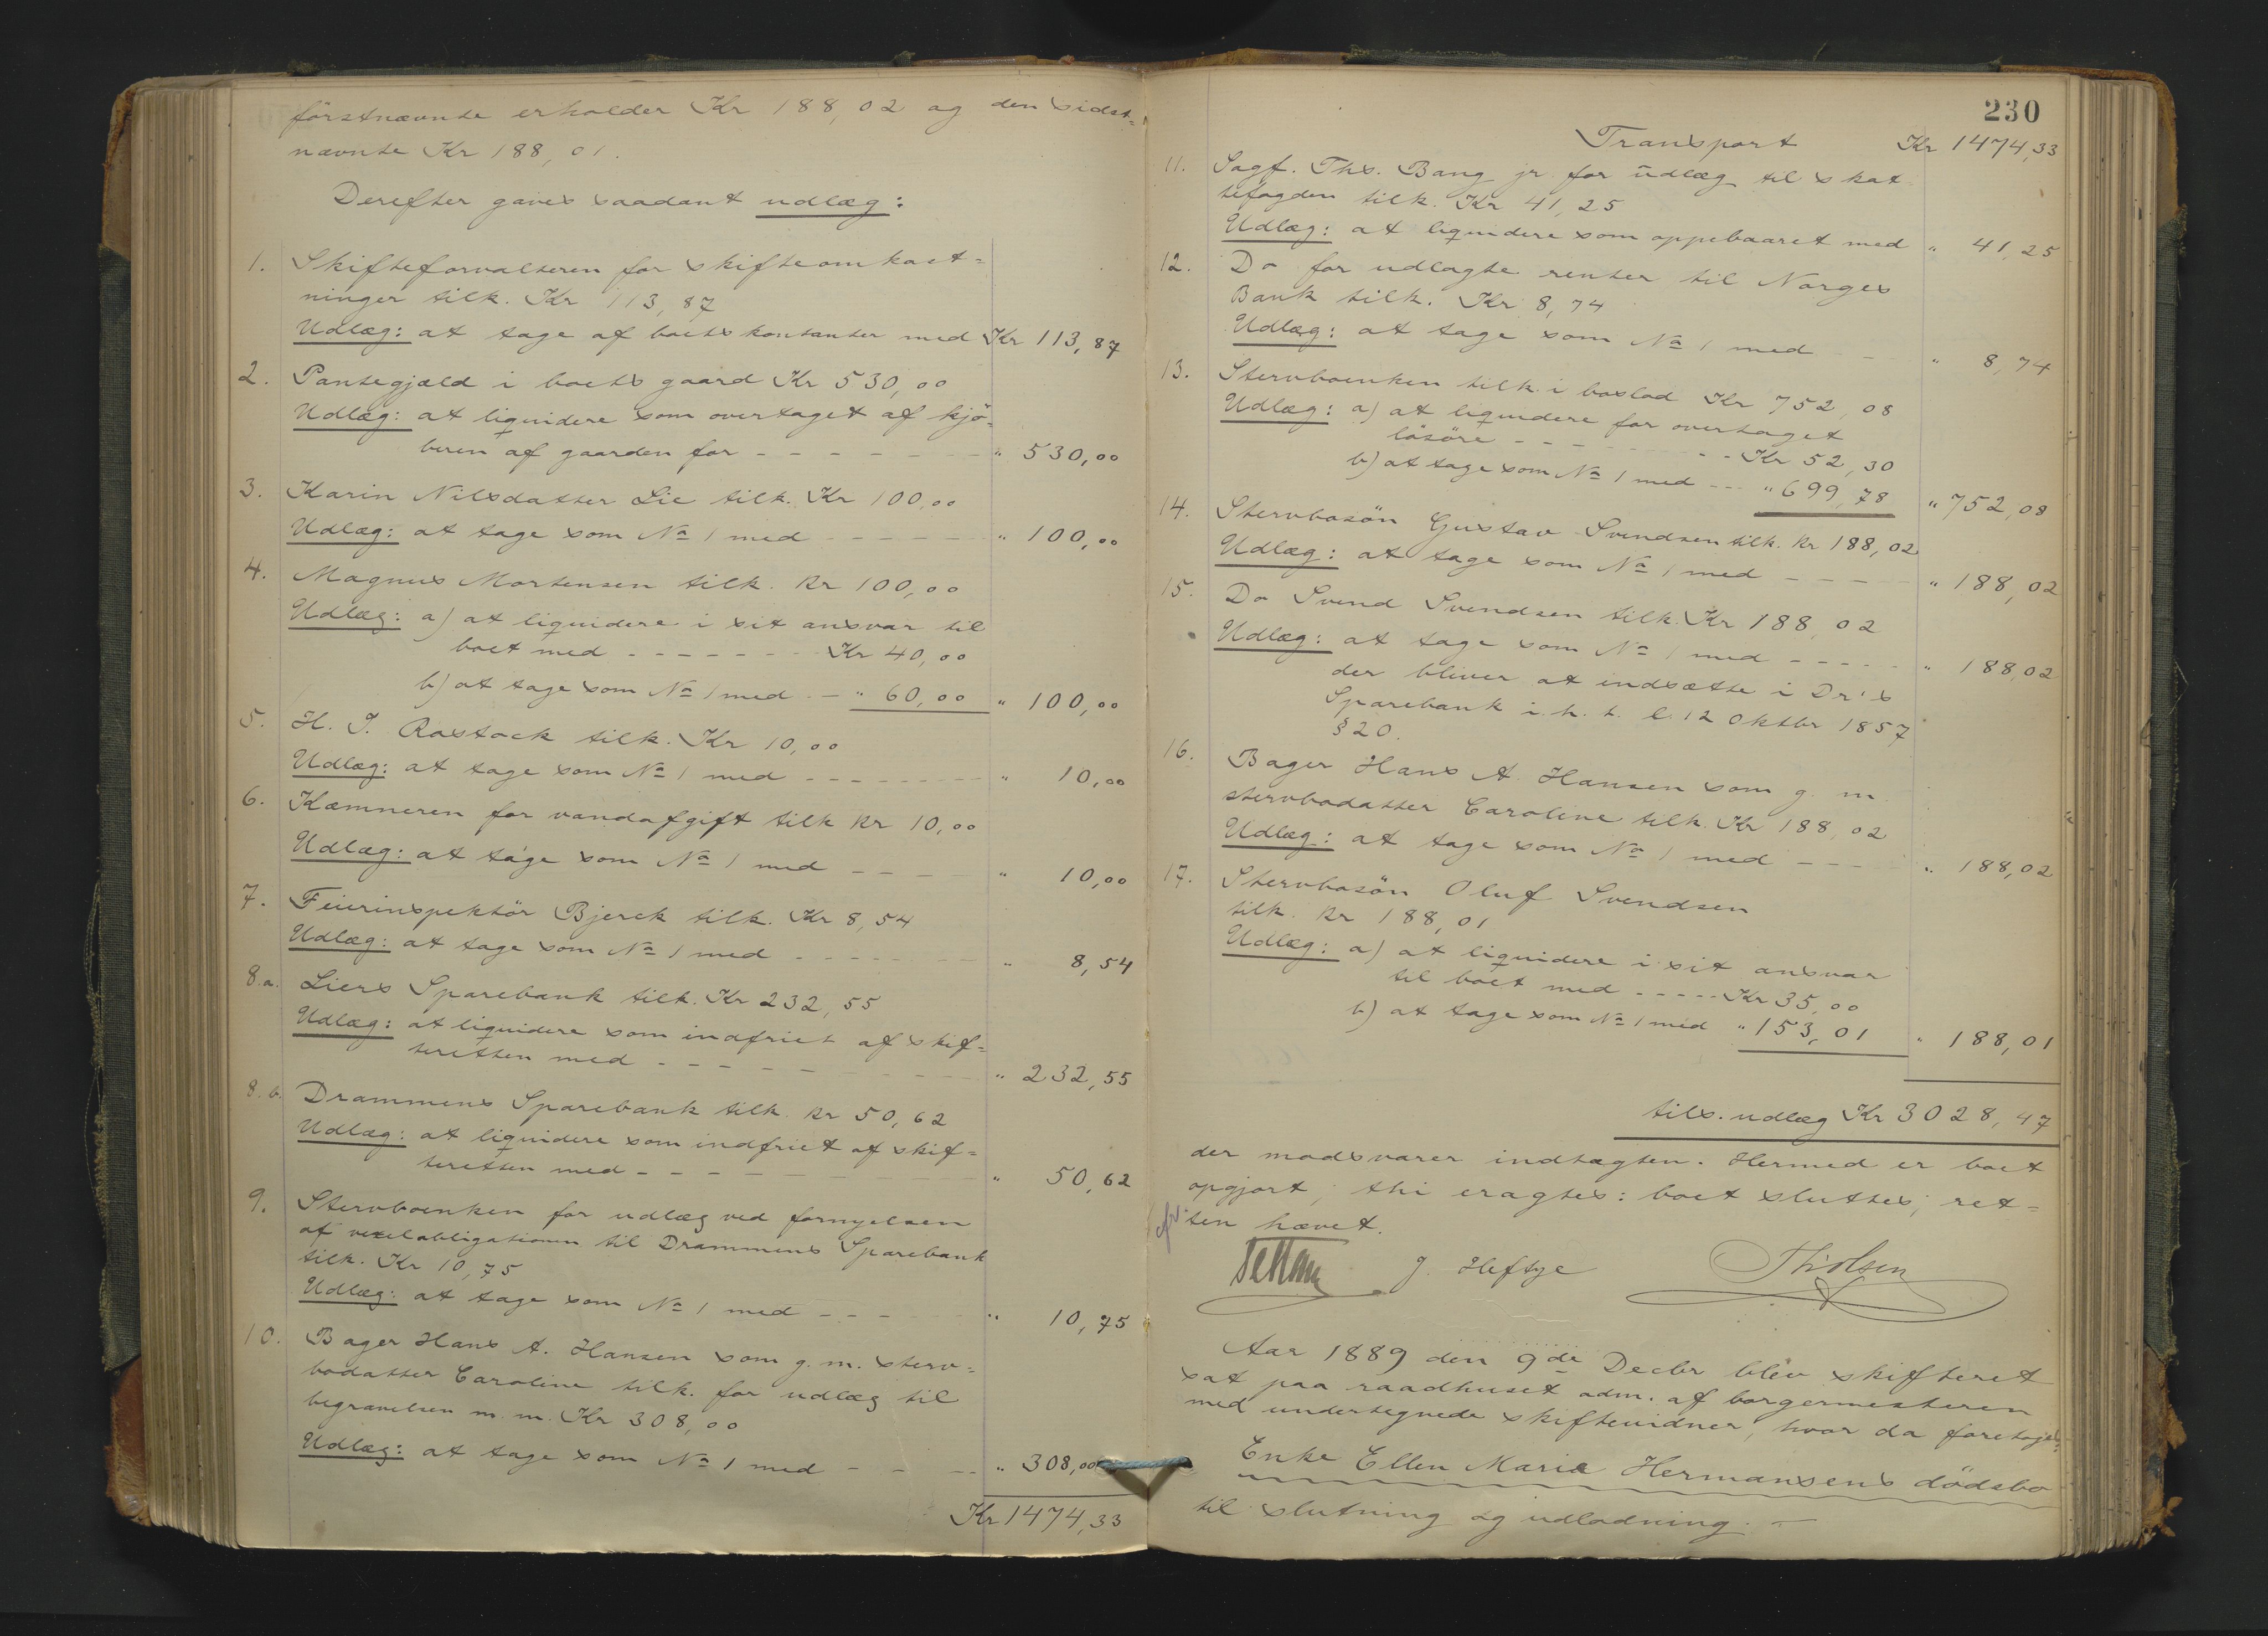 förstnævnte erholder Kr 188,02 og den sidst=
nævnte Kr 188,01.
Derefter gaves saadant udlæg:
1. Skifteforvalteren for skifteomkost=
ninger tilk. Kr 113,87
Udlæg: at tage af boets kontanter med Kr 113,87
2. Pantegjæld i boets gaard Kr 530,00
Udlæg: at liquidere som overtaget af kjö=
beren af gaarden for - - - - - - - " 530,00
3. Karin Nilsdatter Lie tilk. Kr 100,00
Udlæg: at tage som No 1 med - - - - - " 100,00
4. Magnus Mortensen tilk. Kr 100,00
Udlæg: a) at liquidere i sit ansvar til
boet med - - - - - - - Kr 40,00
b) at tage som No 1 med - " 60,00 " 100,00
5. H. J. Rostock tilk. Kr 10,00
Udlæg: at tage som No 1 med - - - - - - - " 10,00
6. Kæmneren for vandafgift tilk Kr 10,00
Udlæg: at tage som No 1 med - - - - " 10,00
7. Feierinspektör Bjerck tilk. Kr 8,54
Udlæg: at tage som No 1 med - - - - - - - " 8,54
8.a. Liers Sparebank tilk. Kr 232,55
Udlæg: at liquidere som indfriet af skif=
teretten med - - - - - - - - " 232,55
8.b. Drammens Sparebank tilk. Kr 50,62
Udlæg: at liquidere som indfriet af skif=
teretten med - - - - - - - - " 50,62
9. Stervboenken for udlæg ved fornyelsen
af vexelobligationen til Drammens Sparebank
tilk. Kr 10,75
Udlæg: at tage som No 1 med - - - " 10,75
10. Bager Hans A. Hansen som g. m. sterv=
bodatter Caroline tilk. for udlæg til
begravelsen m. m. Kr 308,00
Udlæg: at tage som No 1 med - - - " 308,00
Kr 1474,33
230
Transport Kr 1474,33
11. Sagf. Ths. Bang jr. for udlæg til skat
tefogden tilk. Kr 41,25
Udlæg: at liquidere som oppebaaret med " 41,25
12. Do for udlagte renter til Norges
Bank tilk. Kr 8,74
Udlæg: at tage som No 1 med - - " 8,74
13. Stervboenken tilk. i boslod Kr 752,08
Udlæg: a) at liquidere for overtaget
lösöre - - - - - - Kr 52,30
b) at tage som No 1 med - - - " 699,78 " 752,08
14. Stervbosön Gustav Svendsen tilk. Kr 188,02
Udlæg: at tage som No 1 med - - - - " 188,02
15. Do Svend Svendsen tilk. Kr 188,02
Udlæg: at tage som No 1 med - - - - - " 188,02
der bliver at indsætte i Dr's
Sparebank i. h. t. l. 12 Oktbr 1857
§ 20.
16. Bager Hans A. Hansen som g. m.
stervbodatter Caroline tilk. Kr 188,02
Udlæg: at tage som No 1 med - - - " 188,02
17. Stervbosön Oluf Svendsen
tilk. Kr 188,01
Udlæg: a) at liquidere i sit ansvar
til boet med - - - - - Kr 35,00
b) at tage som No 1 med " 153,01 " 188,01
tils. udlæg Kr 3028,47
der modsvarer indtægten. Hermed er boet
opgjort, thi eragtes: boet sluttes, ret=
ten hævet.
J. Heftye
Aar 1889 den 9de Decbr blev skifteret
sat paa raadhuset adm. af borgermesteren
med undertegnede skiftevidner, hvor da foretoges:
Enke Ellen Marie Hermansens dödsbo
til slutning og udlodning. -